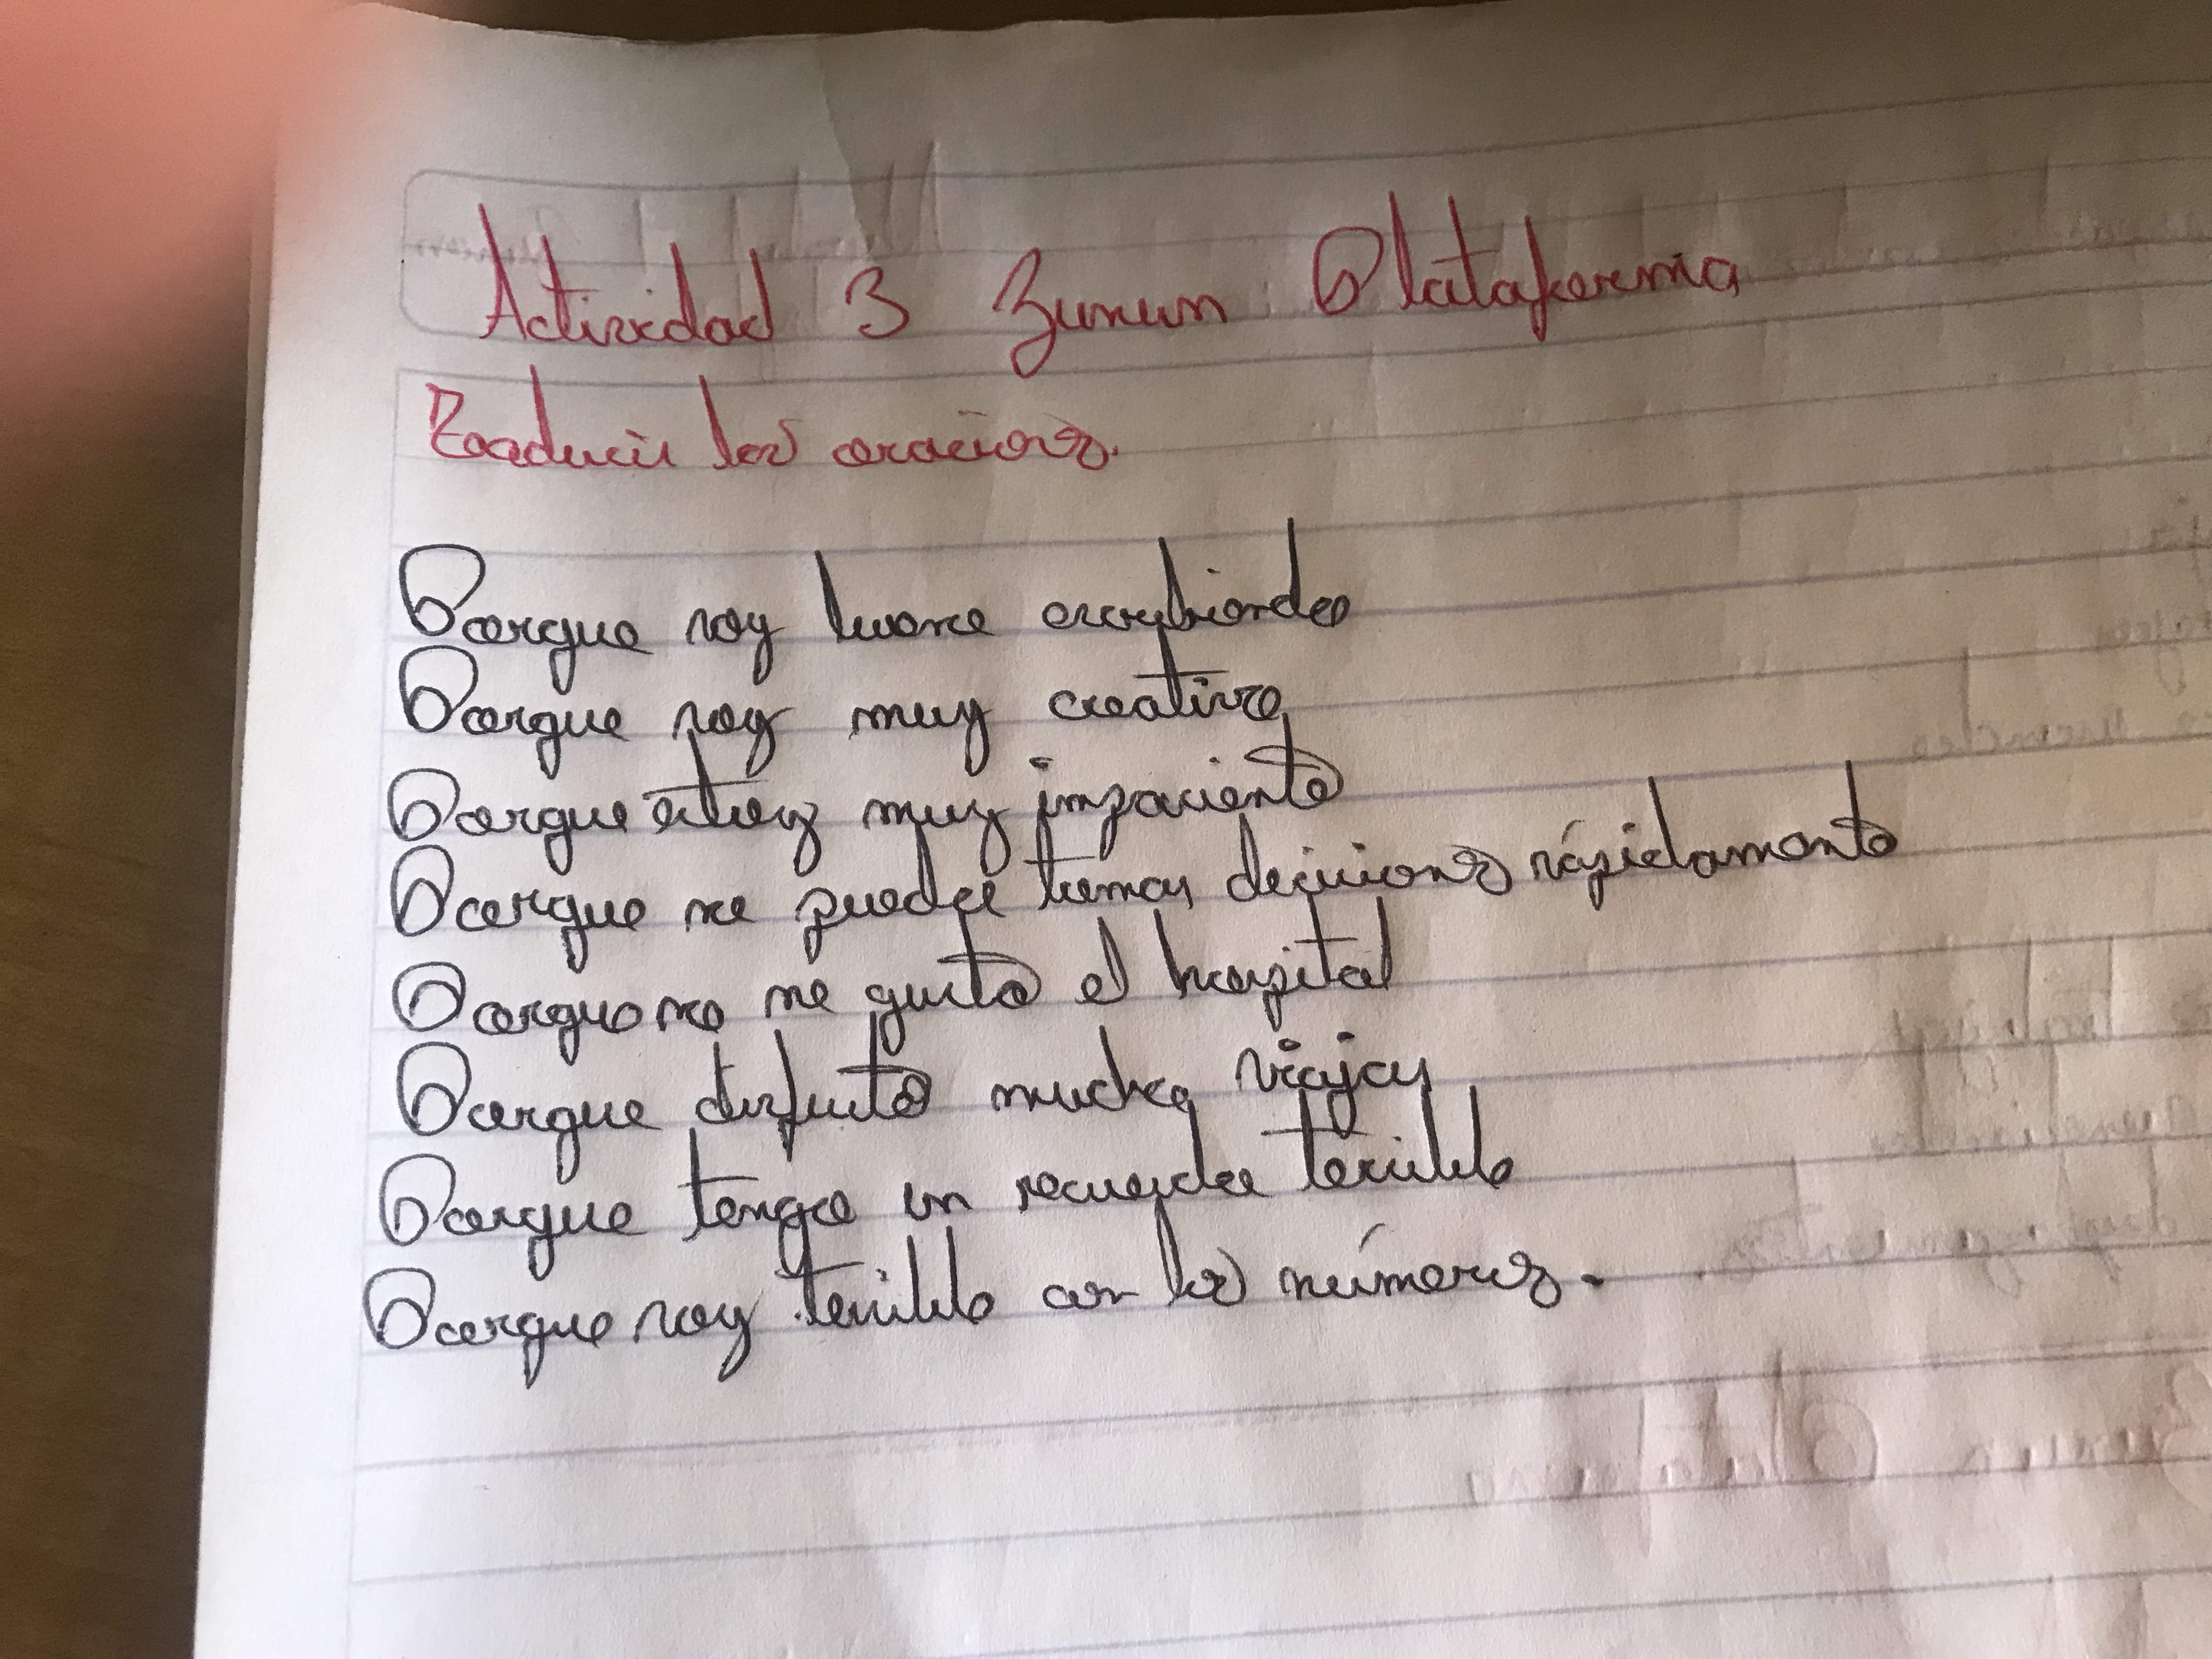 Actividad 3 Zunun Plataforma
Traducir las oraciones.
Porque soy bueno escribiendo
Porque soy muy creativo
Porque estoy muy impaciente
Porque no puedo tomar decisiones rápidamente
Porque no me gusta el hospital
Porque disfruto mucho viajar
Porque tengo un recuerdo terrible
Porque soy terrible con los números.